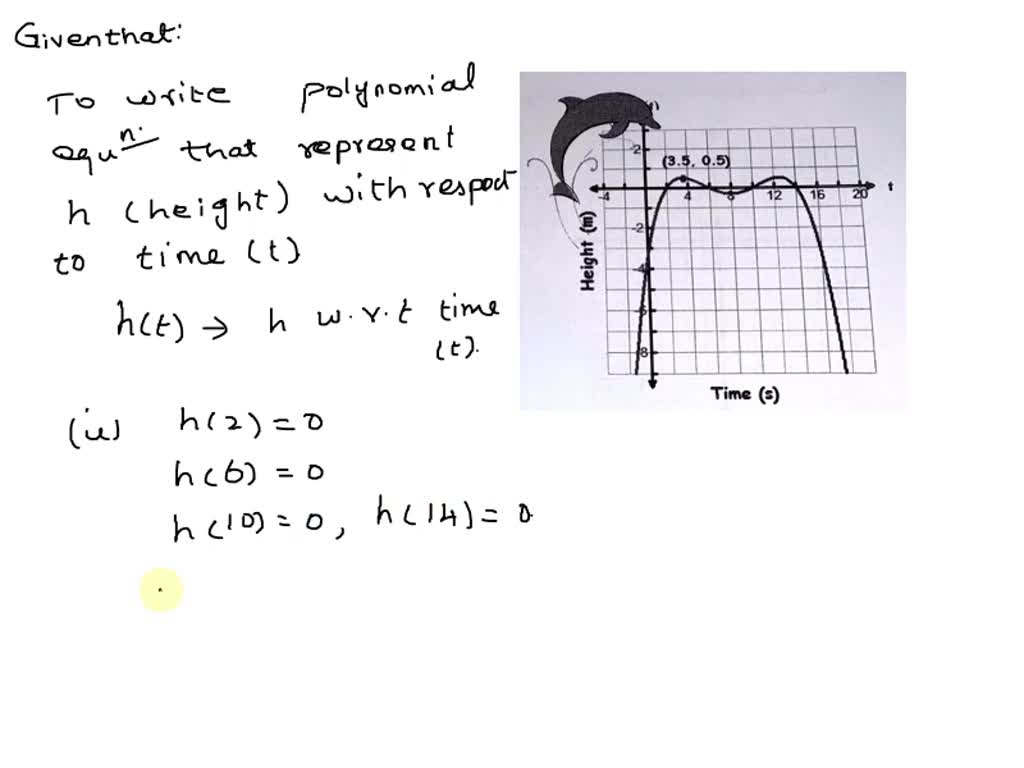 Given that:
To write polynomial
equn. that represent
h (height) with respect
to time (t)
h(t) → h w.r.t time
(t).
(ie) h(2) = 0
h(6) = 0
h(10) = 0, h(14) = 0
2
(3.5, 0.5)
-4 4 8 12 16 20 t
-2
-4
-6
-8
Height (m)
Time (s)